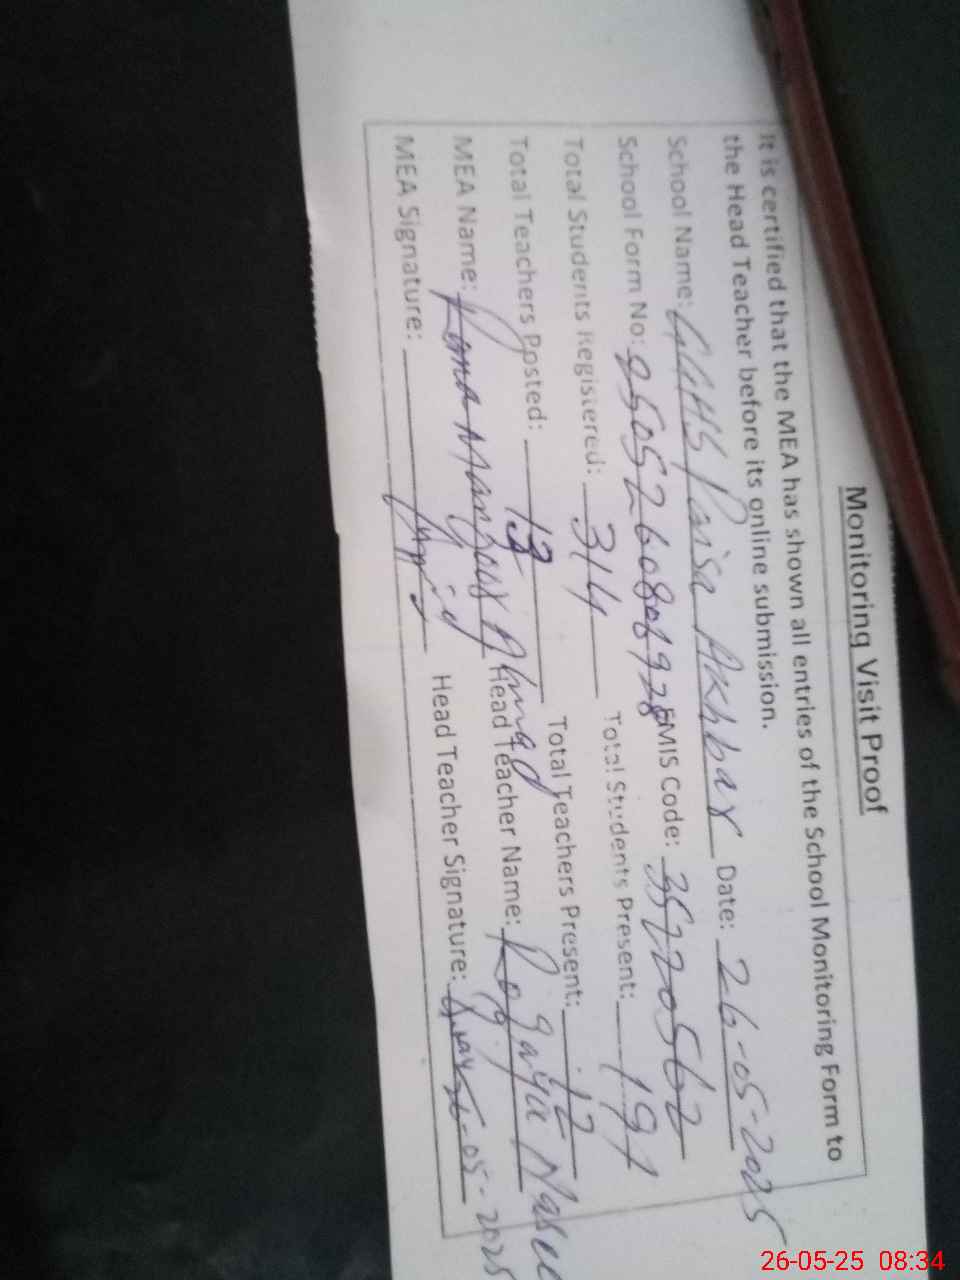 Monitoring Visit Proof
It is certified that the MEA has shown all entries of the School Monitoring Form to
the Head Teacher before its online submission.
School Name: GGHS Akhbar Date: 26-05-2025
School Form No: EMIS Code: 35220562
Total Students Registered: 314 Total Students Present: 191
Total Teachers Posted: 13 Total Teachers Present: 12
MEA Name: Rana Ahmad Head Teacher Name: Roqaya
MEA Signature: Head Teacher Signature: 05-2025
26-05-25 08:34